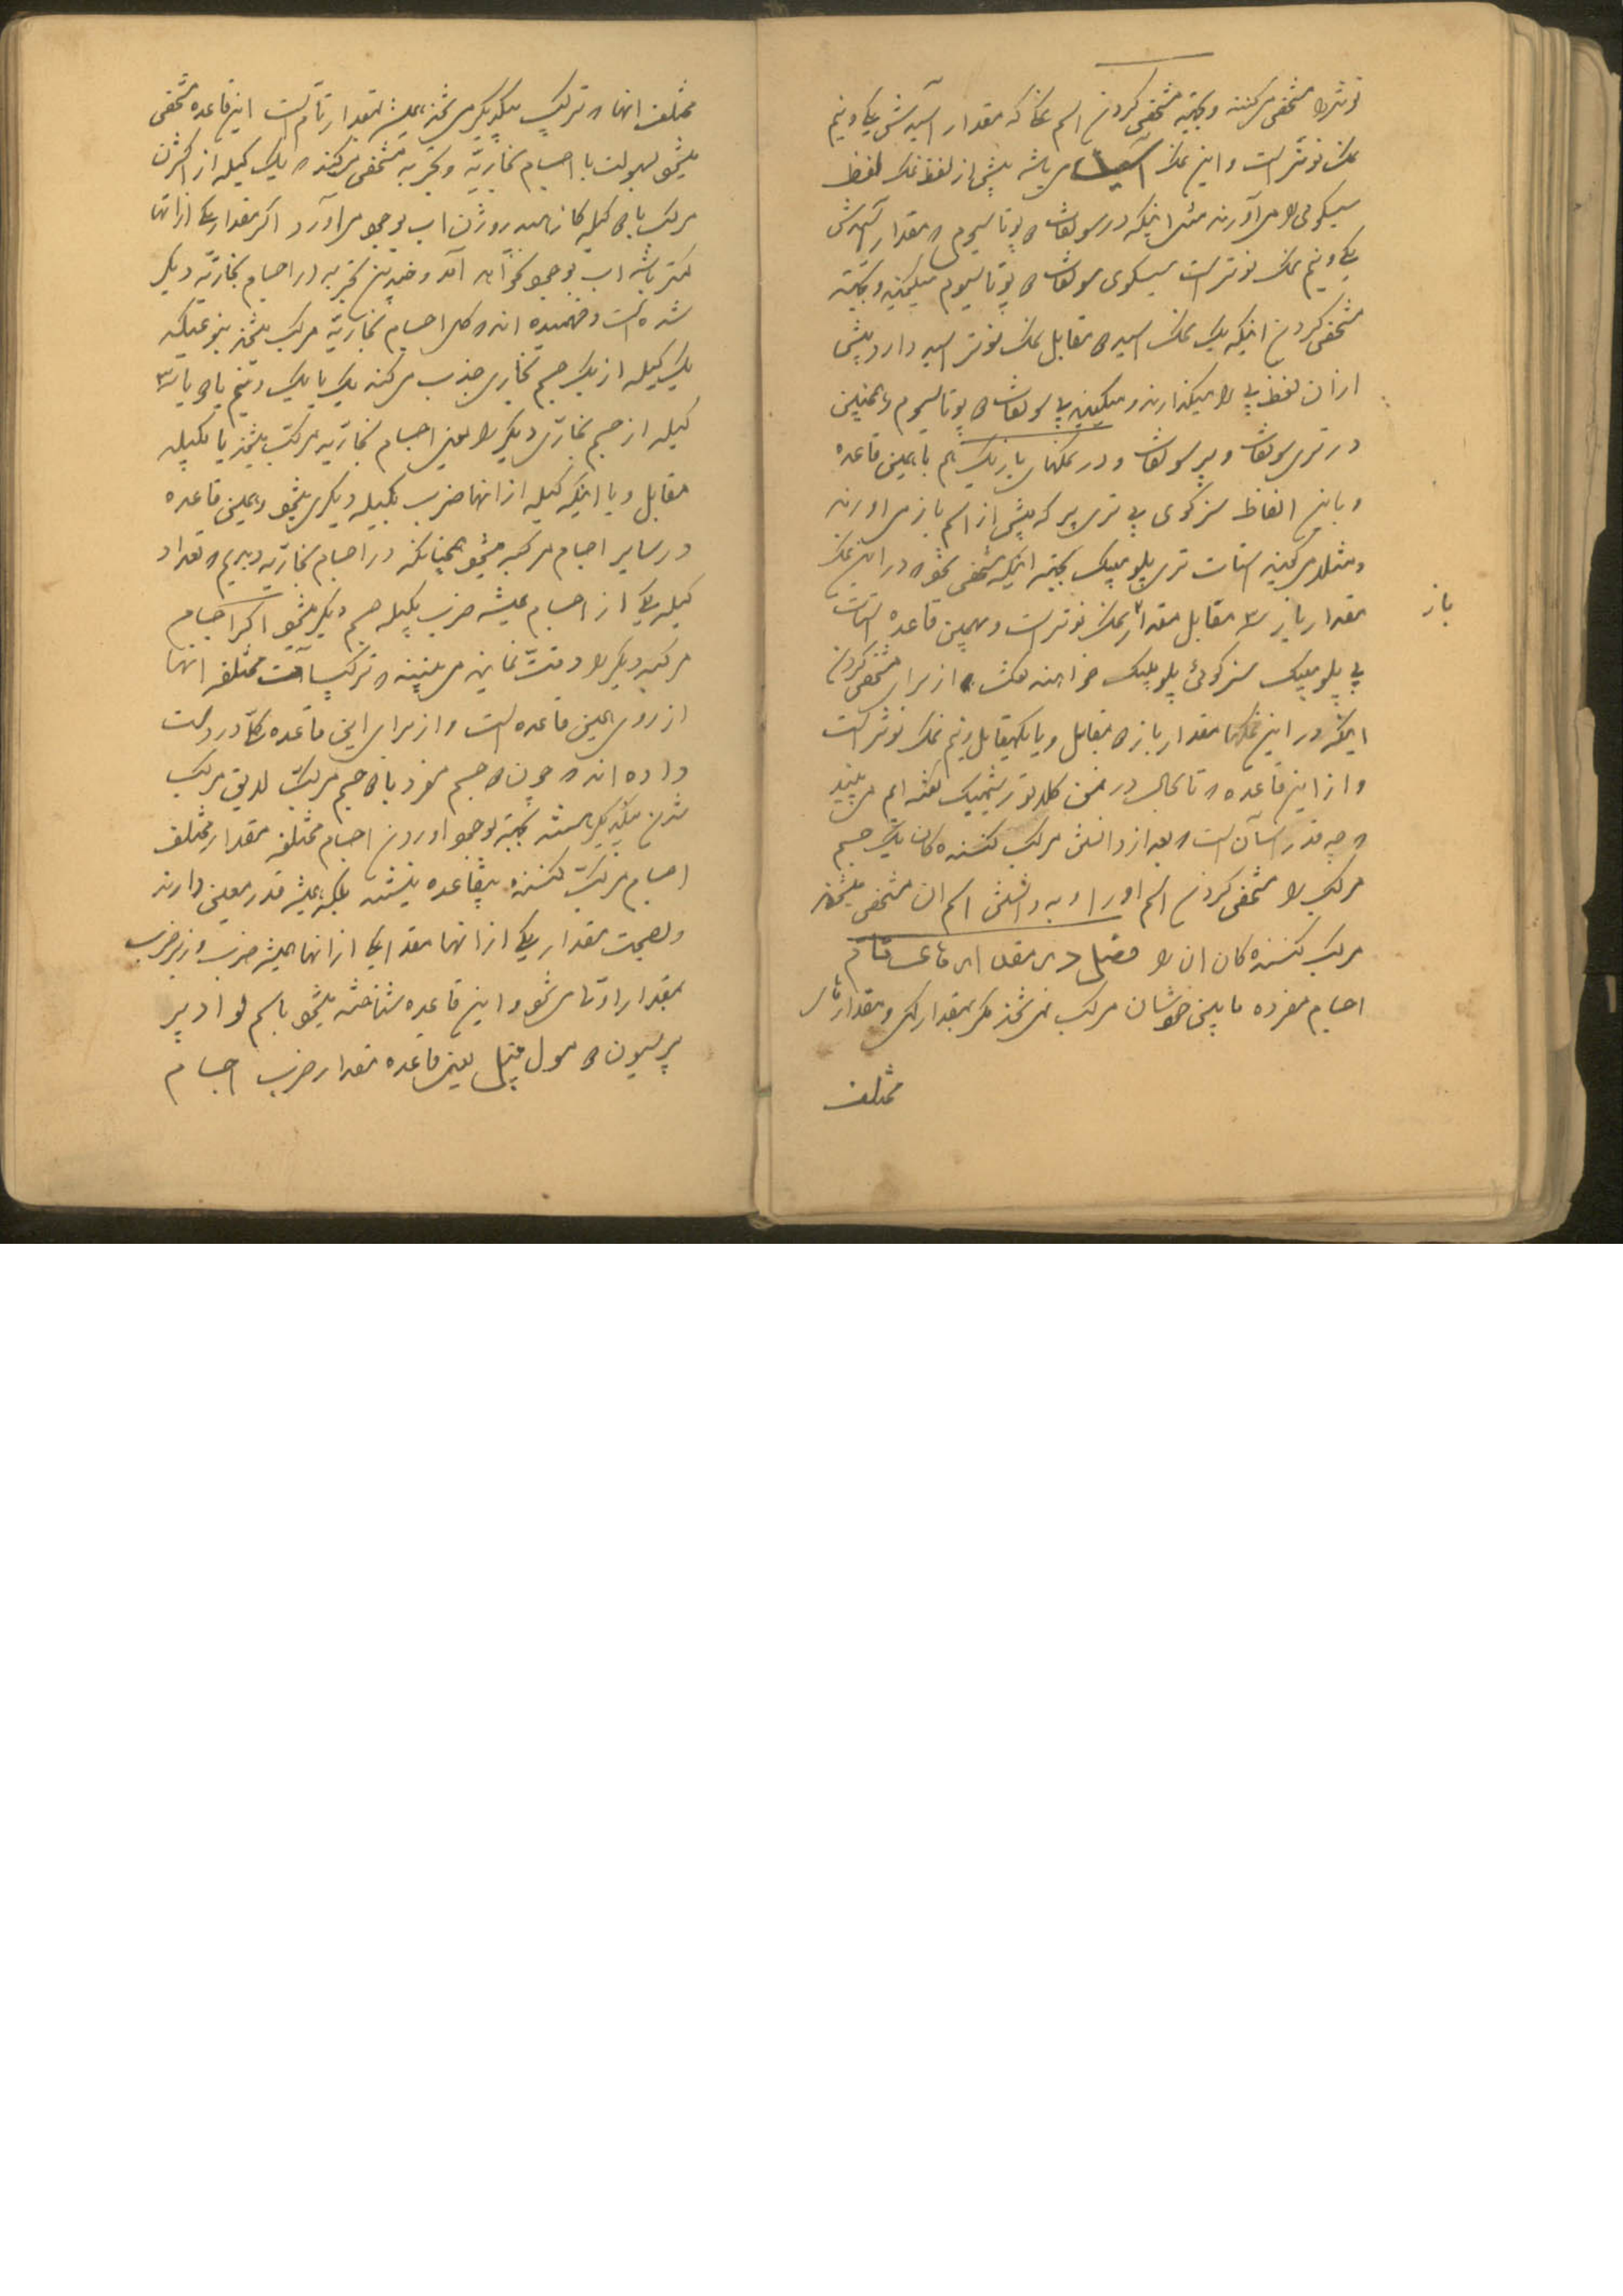 نوتر را مشخص میکنند و بجهته مشخص کردن اسم نمک که مقدار اسیدش یک و نیم
نمک نوتر است و این نمک اسید میباشد پیش از لفظ نمک لفظ
سیسکوئی را میآورند مثل اینکه در سولفات پوتاسیوم که مقدار اسیدش
یک و نیم نمک نوتر است سیسکوی سولفات پوتاسیوم میگویند و بجهته
مشخص کردن اینکه یک نمک اسید مقابل نمک نوتر اسید دارد پیش
از ان لفظ بی را میگذارند و میگویند بی سولفات پوتاسیوم و همچنین
در تری سولفات و پر سولفات و در نمکهای بازیک هم با همین قاعده
و باین الفاظ سزکوی بی تری پر که پیش از اسم باز میاورند
و مثلا میگویند استات تری پلومبیک بجهته اینکه مشخص شود که در این نمک
مقدار باز ۳ مقابل مقدار نمک نوتر است و بهمین قاعده استات
باز
بی پلومبیک سزکوئی پلومبیک خواهند گفت از برای مشخص کردن
اینکه در این نمکها مقدار باز مقابل و یا یکمقابل و نیم نمک نوتر است
و از این قاعده که تا بحال در ضمن گفته ایم می بینید
که چه قدر اسان است که بعد از دانستن مرکب کننده کان یک جسم
مرکب را مشخص کردن اسم او را و به دانستن اسم ان مشخص میشوند
مرکب کننده کان ان را فصل در مقدار قاعده تام
اجسام مفرده مابین خودشان مرکب نمیشوند مگر بمقدار و مقدارهای
مختلف
مختلف انها که ترکیب بیکدیگر میشوند همیشه بمقدار تام است این قاعده مشخص
میشود بسهولت با اجسام بخاریه و تجربه مشخص میکند که یک کیله از اکثرن
مرکب با کیله کاز هیدروژن اب بوجود میاورد اگر مقدار یکی از انها
کمتر باشد اب بوجود نخواهد آمد و چندین تجربه در اجسام بخاریه دیگر
شده است و فهمیده اند که کل اجسام بخاریه مرکب میشوند بنوعیکه
یک کیله از یک جسم بخاری جذب میکند یک یا یک و نیم یا یا ۳
کیله از جسم بخاری دیگر را یعنی اجسام بخاریه مرکب میشوند یا بکیله
مقابل و یا اینکه کیله از انها ضرب بکیله دیگری میشود و همین قاعده
در سایر اجسام مرکبه میشود همچنانکه در اجسام بخاریه دیدیم که تعداد
کیله یکی از اجسام همیشه ضرب بکیله جسم دیگر میشود اگر اجسام
مرکبه دیگر را دقت نمایند می بینند که ترکیبات مختلفه انها
از روی همین قاعده است و از برای این قاعده دو دلت
داده اند که چون جسم مفرد با جسم مرکب لایق مرکب
شدن بیکدیگر هستند بجهته بوجود اوردن اجسام مختلفه مقدار مختلف
اجسام مرکب کننده بیقاعده نیستند بلکه همیشه قدر معین دارند
و بصحت مقدار یکی از انها مقدار یکی از انها همیشه ضرب و زیر ضرب
بمقدار او تام میشود و این قاعده شناخته میشود باسم لوا د پر
پرسیون مول تیپل یعنی قاعده مقدار ضرب اجسام